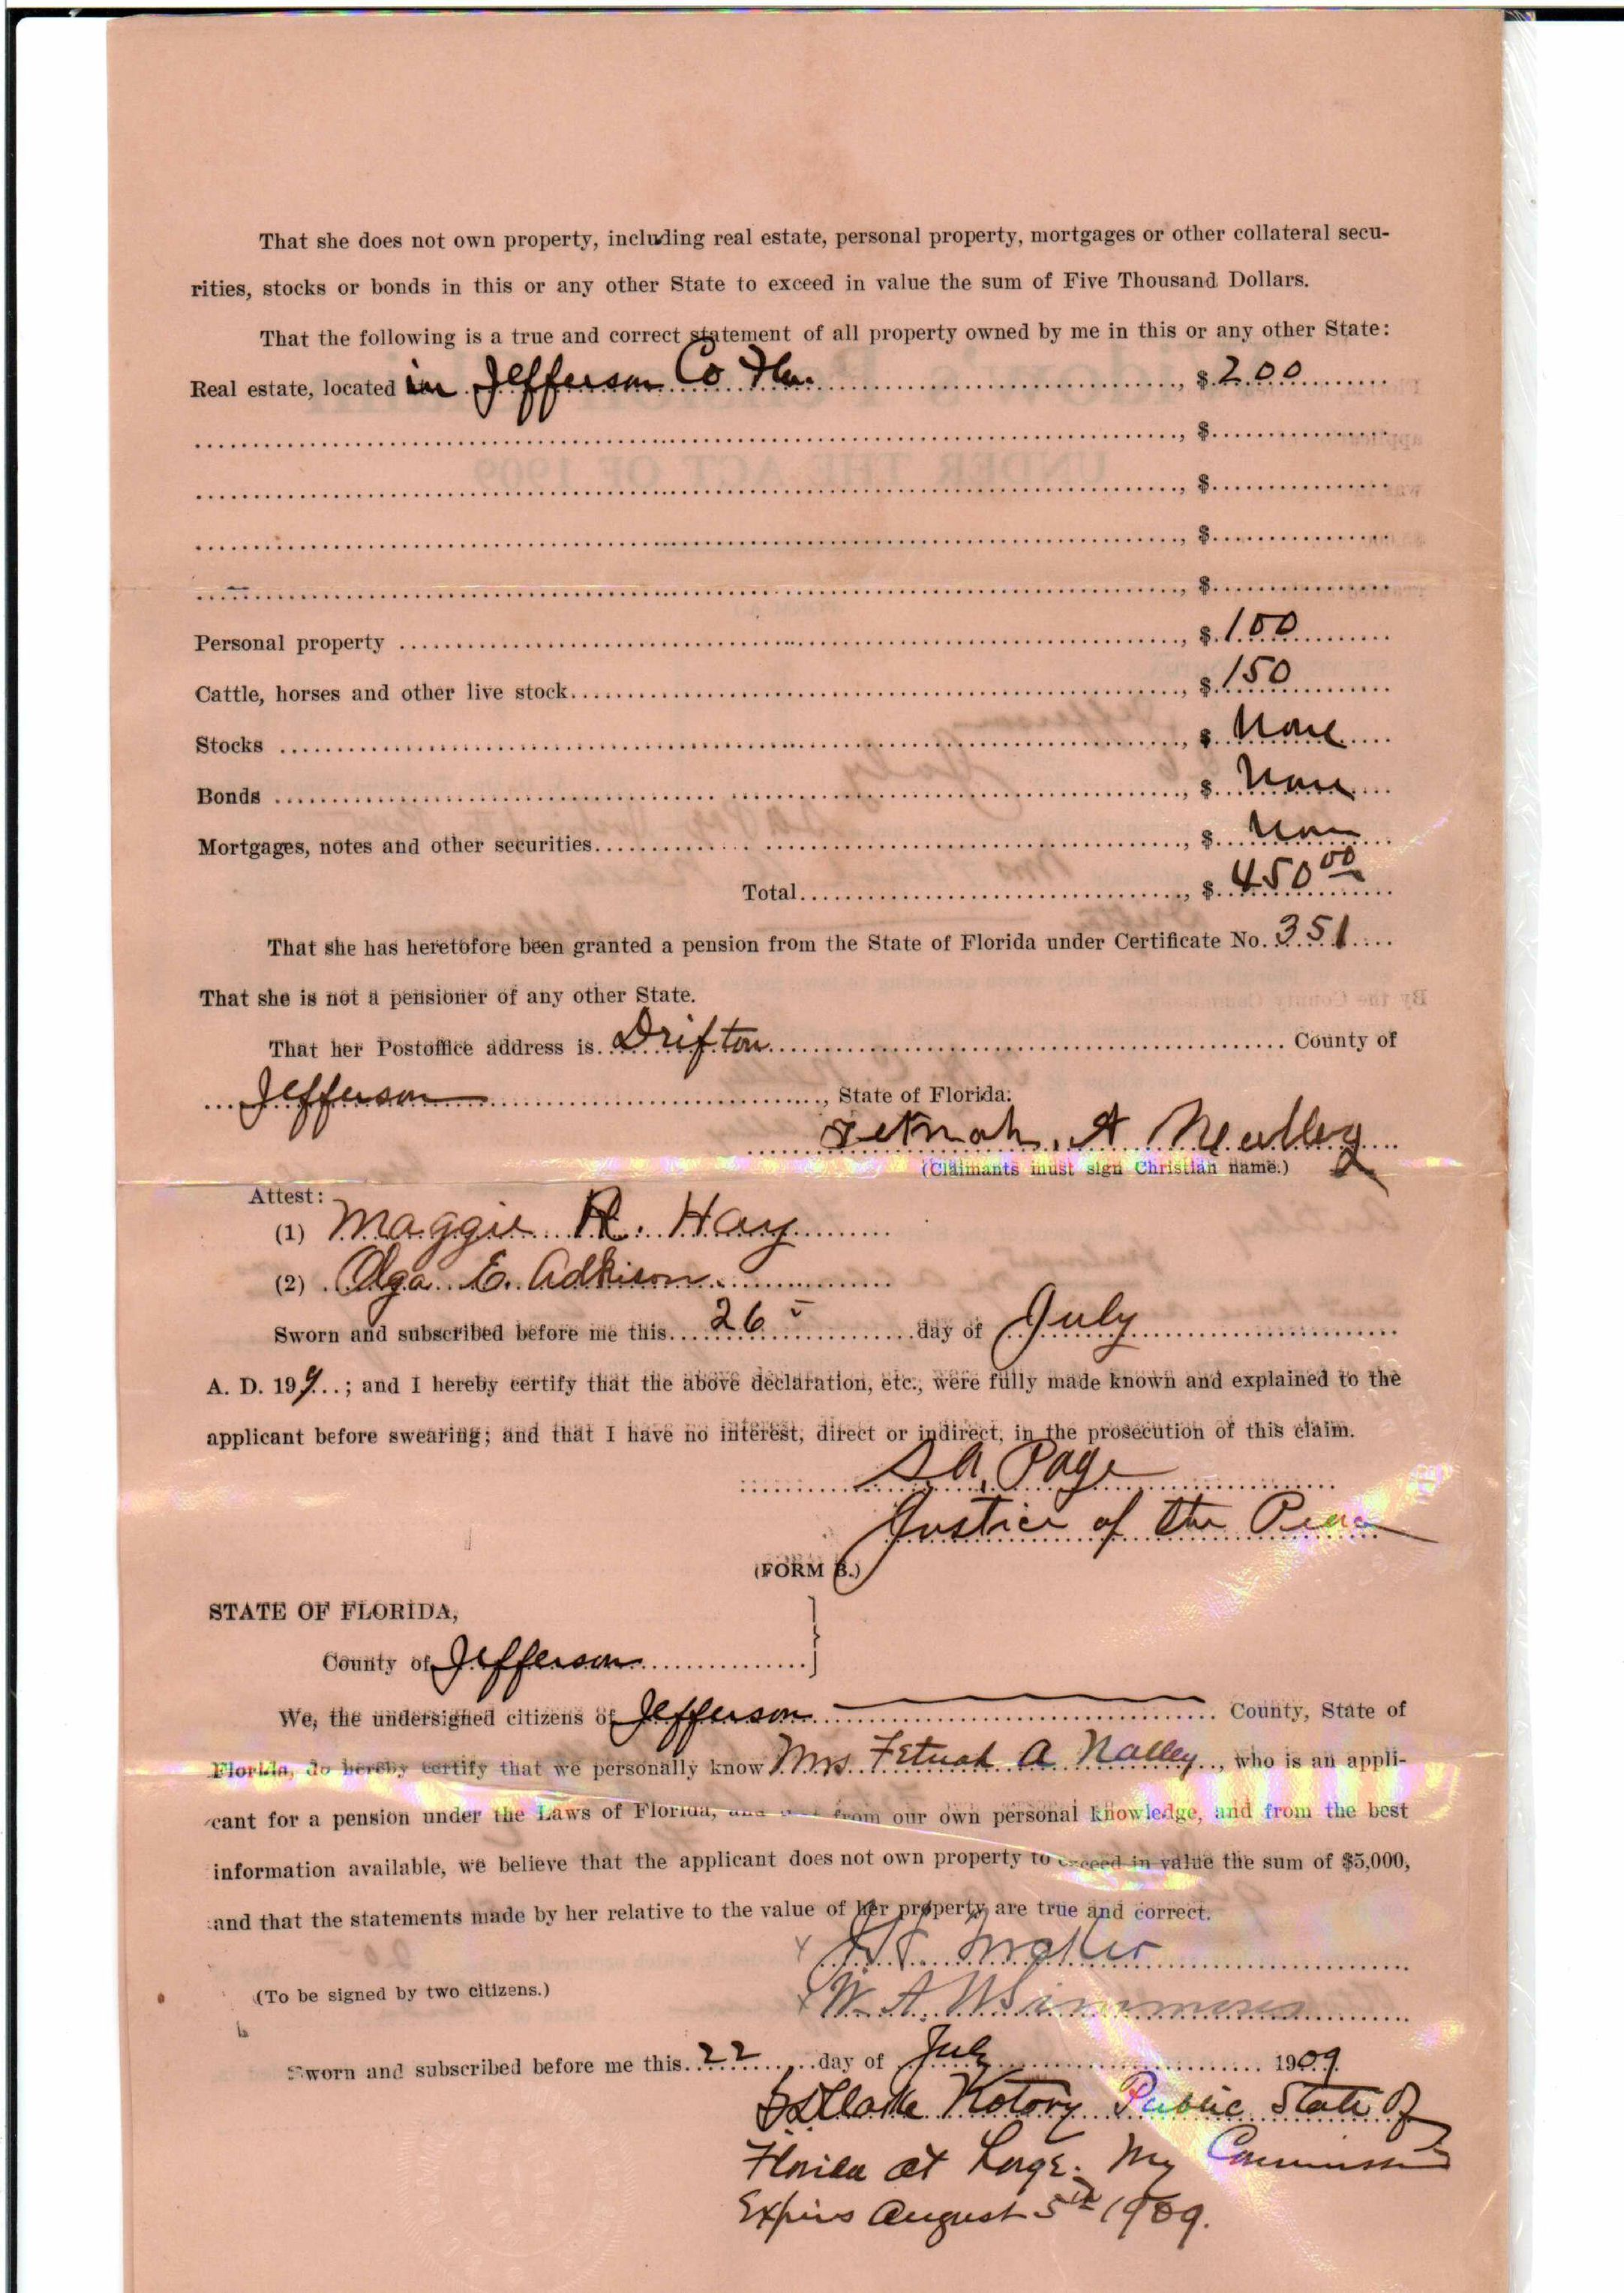 That she does not own property, including real estate, personal property, mortgages or other collateral secu-
rities, stocks or bonds in this or any other State to exceed in value the sum of Five Thousand Dollars.
That the following is a true and correct statement of all property owned by me in this or any other State:
Real estate, located in Jefferson Co Fla. , $ 200
, $
, $
, $
, $
Personal property , $ 100
Cattle, horses and other live stock , $ 150
Stocks , $ None
Bonds , $ None
Mortgages, notes and other securities , $ None
Total , $ 450 00
That she has heretofore been granted a pension from the State of Florida under Certificate No. 351
That she is not a pensioner of any other State.
That her Postoffice address is Drifton County of
Jefferson , State of Florida.
A
(Claimants must sign Christian name.)
Attest:
(1) Maggie R. Hay
(2) Olga E. Adkison
Sworn and subscribed before me this 26 day of July
A. D. 199 ; and I hereby certify that the above declaration, etc., were fully made known and explained to the
applicant before swearing; and that I have no interest, direct or indirect, in the prosecution of this claim.
S. A. Page
Justice of the Peace
(FORM B.)
STATE OF FLORIDA,
County of Jefferson
We, the undersigned citizens of Jefferson County, State of
Florida, do hereby certify that we personally know Mrs Fetnah A Nalley, who is an appli-
cant for a pension under the Laws of Florida, and that from our own personal knowledge, and from the best
information available, we believe that the applicant does not own property to exceed in value the sum of $5,000,
and that the statements made by her relative to the value of her property are true and correct.
W. A.
(To be signed by two citizens.)
Sworn and subscribed before me this 22 day of July 1909
Notory Public State Of
Florida at Large. My Commission
Expires August 5th 1909.